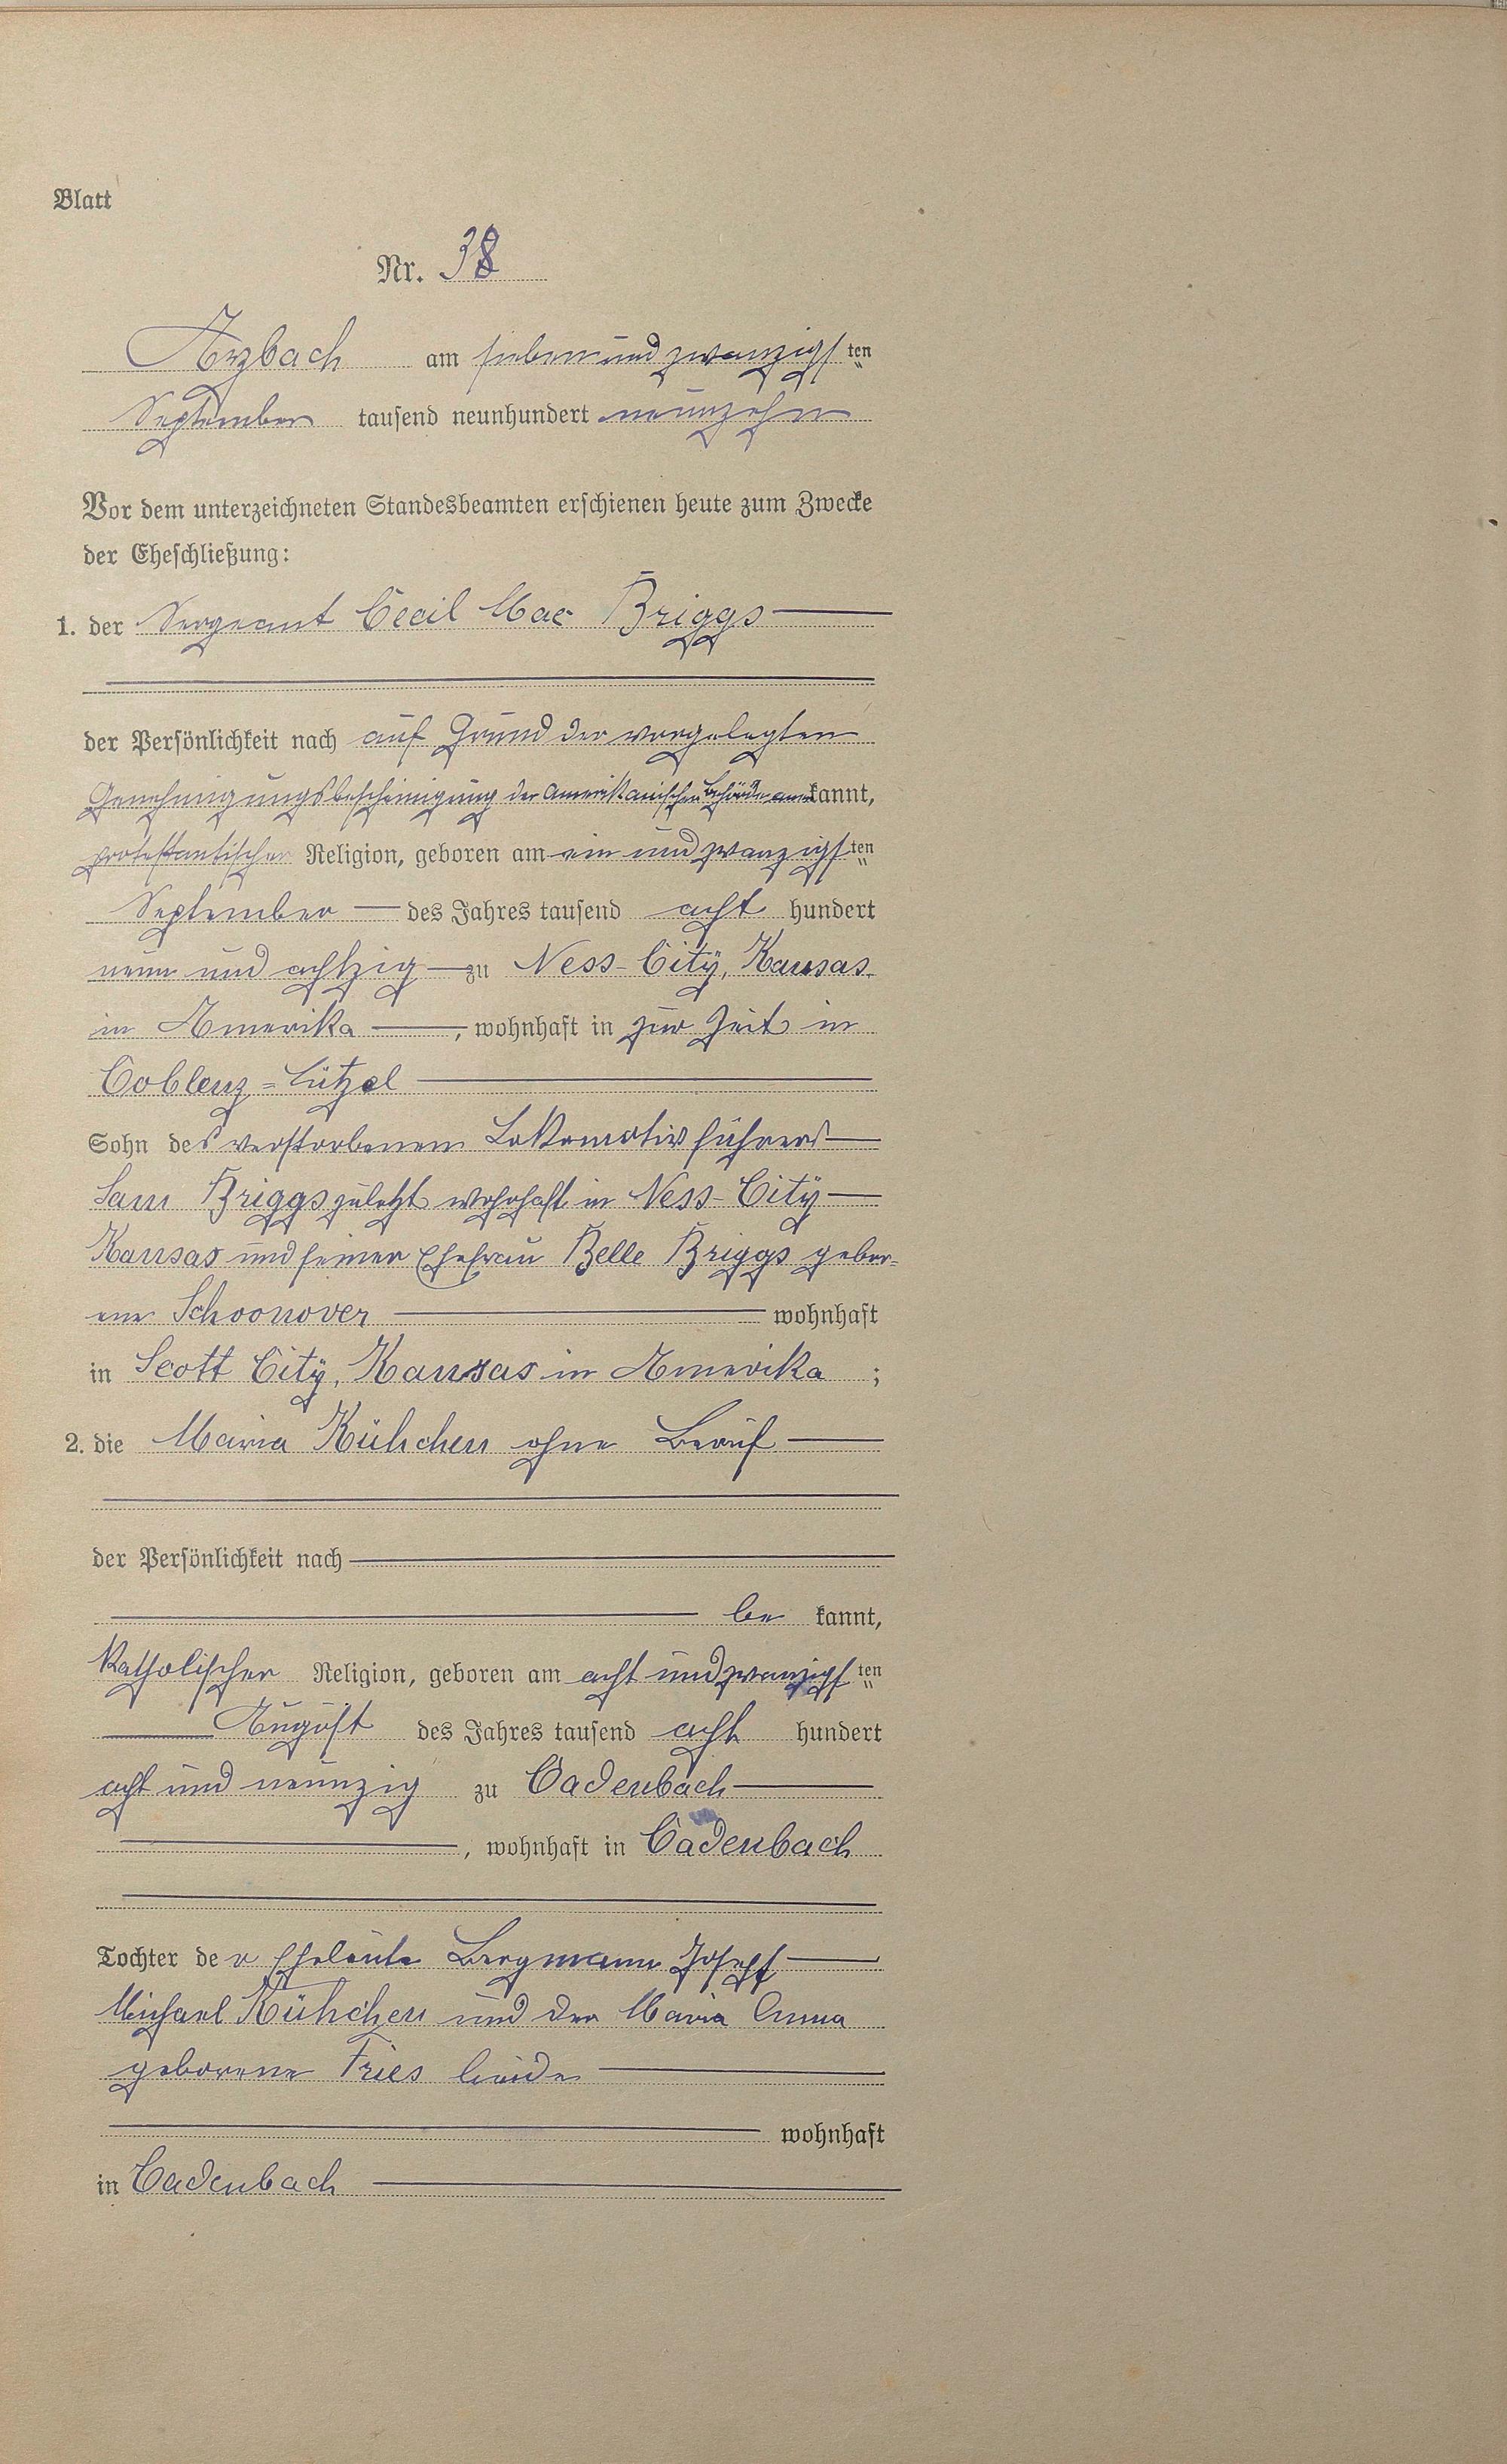 Blatt
Nr. 38
Arzbach am siebenundzwanzigsten
September tausend neunhundert neunzehn
Vor dem unterzeichneten Standesbeamten erschienen heute zum Zwecke
der Eheschließung:
1. der Sergeant Cecil Mac Briggs
der Persönlichkeit nach auf Grund der vorgelegten
Genehmigungsbescheinigung der Amerikanischen Behörde anerkannt,
protestantischer Religion, geboren am ein und zwanzigsten
September des Jahres tausend acht hundert
neun und achtzig zu Ness-City, Kansas
in Amerika, wohnhaft in zur Zeit in
Coblenz=Lützel
Sohn des verstorbenen Lokomotivführers
Sam Briggs zuletzt wohnhaft in Ness-City
Kansas und seiner Ehefrau Belle Briggs gebor=
ene Schoonover wohnhaft
in Scott City, Kansas in Amerika;
2. die Maria Kühchen ohne Beruf
der Persönlichkeit nach
be kannt,
katholischer Religion, geboren am acht und zwanzigsten
August des Jahres tausend acht hundert
acht und neunzig zu Cadenbach
, wohnhaft in Cadenbach
Tochter der Eheleute Bergmann Joseph
Michael Kühchen und der Maria Anna
geborene Fries beide
wohnhaft
in Cadenbach